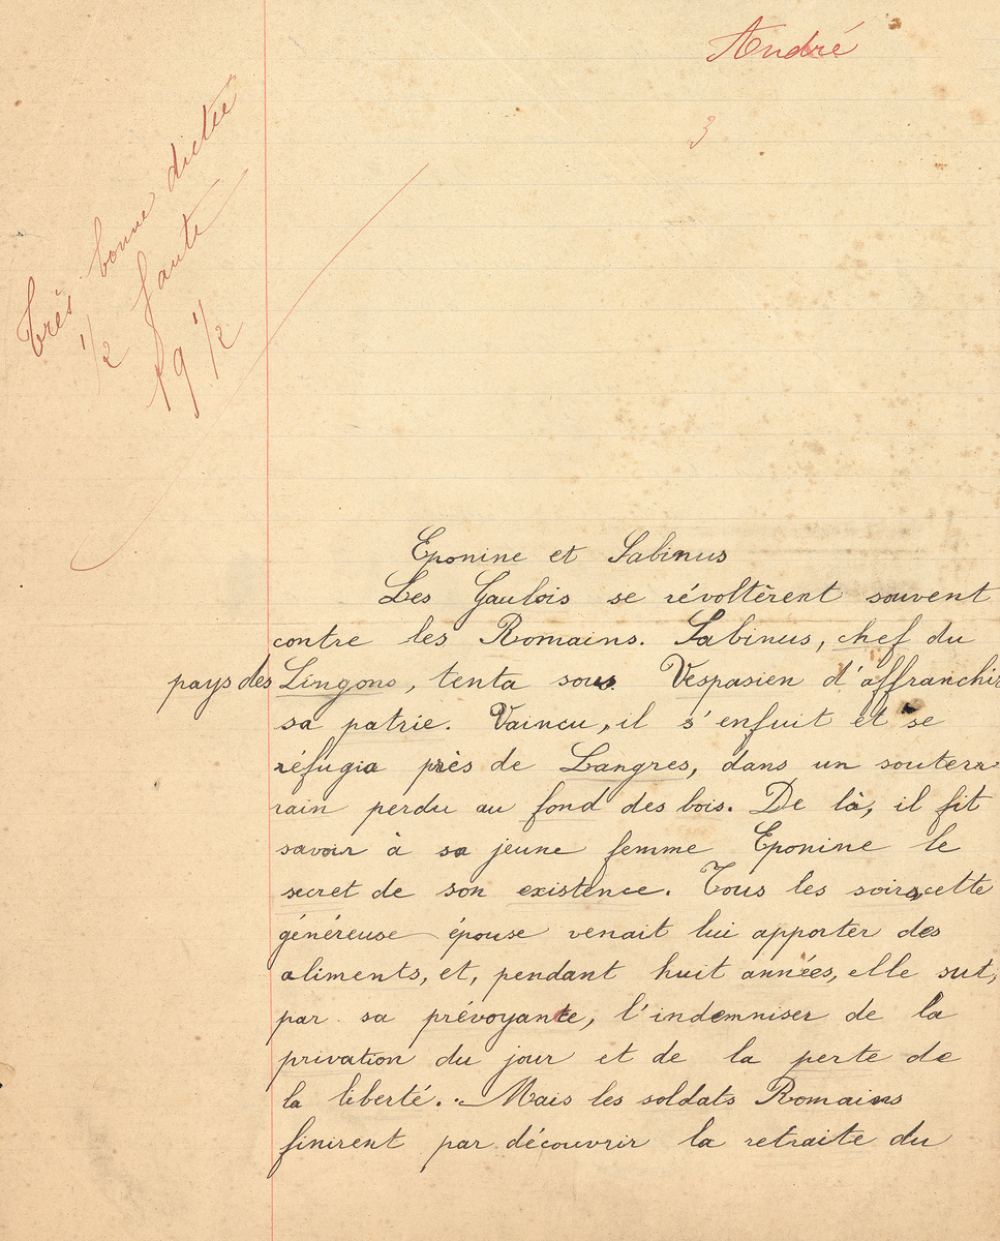 André
3
Très bonne dictée
1/2 faute
19 1/2
Eponine et Sabinus
Les Gaulois se révoltèrent souvent
contre les Romains. Sabinus, chef du
pays des Lingons, tenta sous Vespasien d'affranchir
sa patrie. Vaincu, il s'enfuit et se
réfugia près de Langres, dans un souter-
rain perdu au fond des bois. De là, il fit
savoir à sa jeune femme Eponine le
secret de son existence. Tous les soirs, cette
généreuse épouse venait lui apporter des
aliments, et, pendant huit années, elle sut,
par sa prévoyante, l'indemniser de la
privation du jour et de la perte de
la liberté. Mais les soldats Romains
finirent par découvrir la retraite du